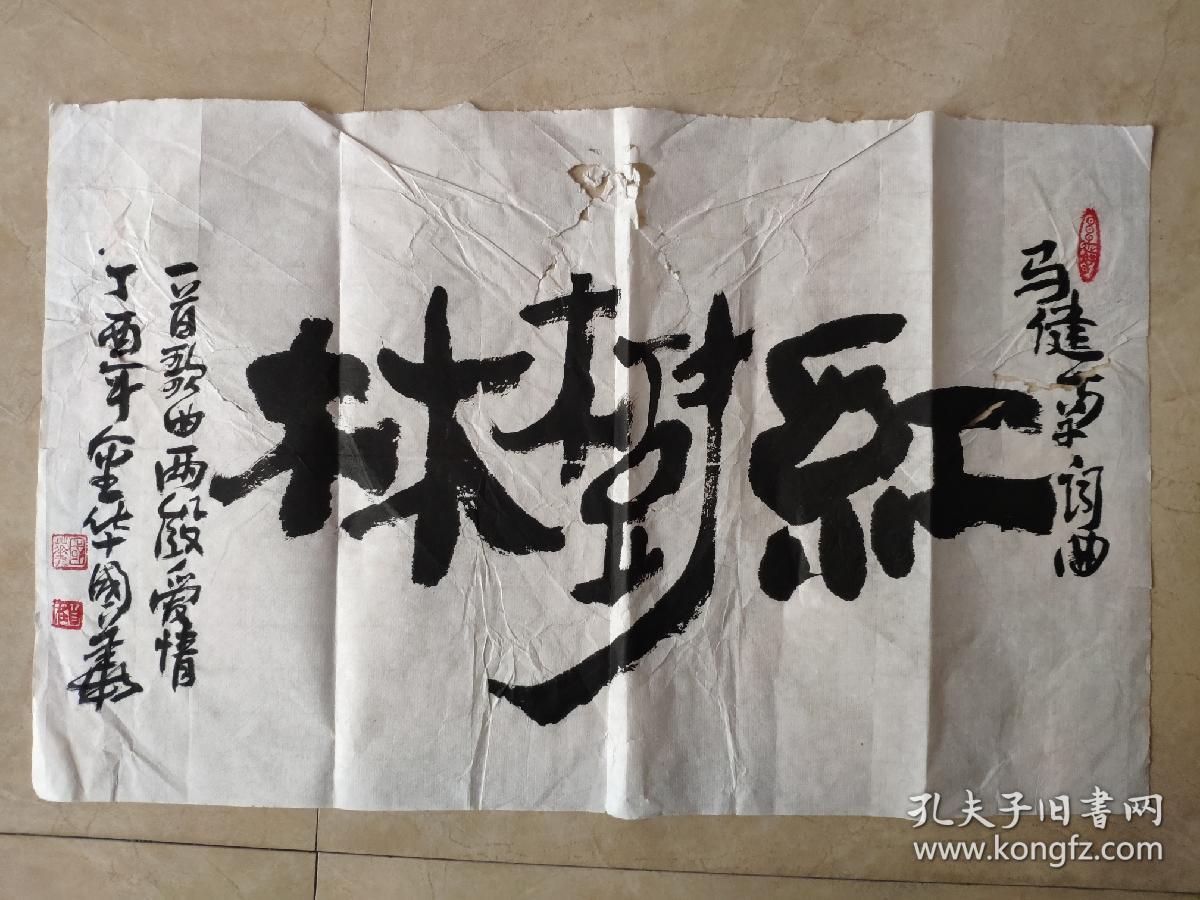 马健平词曲
红树林
一首歌曲两段爱情
丁酉年金华国华
孔夫子旧书网
www.kongfz.com